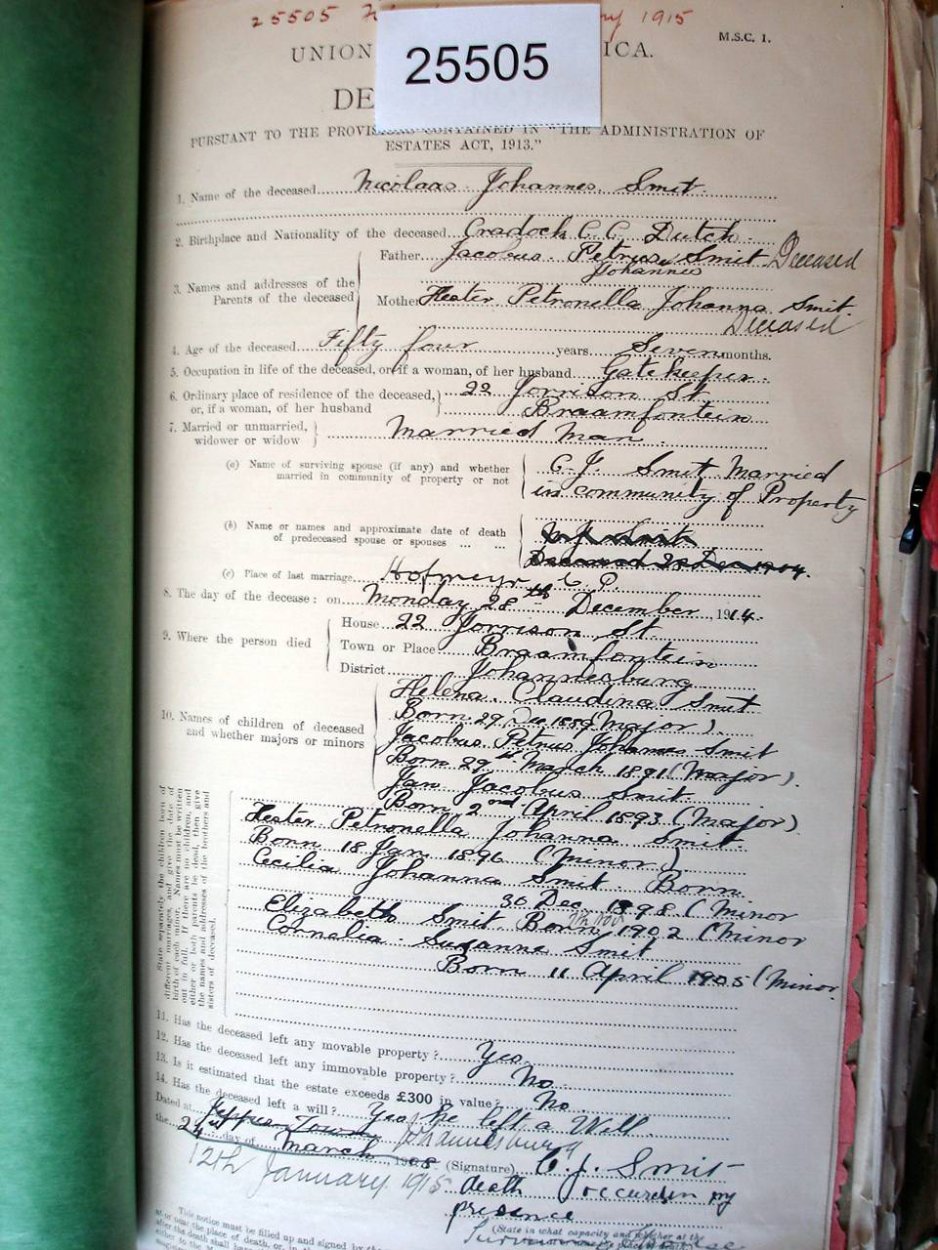 25505 1915
M.S.C. 1.
UNION ICA.
25505
DE
PURSUANT TO THE PROVISIONS CONTAINED IN "THE ADMINISTRATION OF
ESTATES ACT, 1913."
1. Name of the deceased Nicolaas Johannes Smit
2. Birthplace and Nationality of the deceased Cradock C.C. Dutch
3. Names and addresses of the Parents of the deceased
Father Jacobus Petrus Smit Deceased
Johannes
Mother Hester Petronella Johanna Smit
Deceased
4. Age of the deceased Fifty four years Seven months.
5. Occupation in life of the deceased, or if a woman, of her husband Gatekeeper
6. Ordinary place of residence of the deceased, 22 Jorrison St
or, if a woman, of her husband Braamfontein
7. Married or unmarried,
widower or widow Married Man
(a) Name of surviving spouse (if any) and whether C.J. Smit Married
married in community of property or not in community of Property
(b) Name or names and approximate date of death
of predeceased spouse or spouses ... ...
Deceased Dec 1904.
(c) Place of last marriage Hofmeyr C.P.
8. The day of the decease: on Monday 28th December 1914.
9. Where the person died
House 22 Jorrison St.
Town or Place Braamfontein
District Johannesburg
10. Names of children of deceased
and whether majors or minors
Helena Claudina Smit
Born 29 Dec 1889 (Major)
Jacobus Petrus Johannes Smit
Born 29th March 1891 (Major)
Jan Jacobus Smit
Born 2nd April 1893 (Major)
Hester Petronella Johanna Smit
Born 18 Jan 1896 (Minor)
Cecilia Johanna Smit Born
30 Dec 1898 (Minor
Elizabeth Smit Born 1902 (Minor
Cornelia Susanna Smit
Born 11 April 1905 (Minor
State separately the children born of
different marriages, and give the date of
birth of each minor. Names must be written
out in full. If there are no children, and
either or both parents be dead, then give
the names and addresses of the brothers and
sisters of deceased.
11. Has the deceased left any movable property? Yes
12. Has the deceased left any immovable property? No
13. Is it estimated that the estate exceeds £300 in value? No
14. Has the deceased left a will? Yes he left a Will
Dated at Jeppes Town Johannesburg
the day of March 190
12th January 1915
(Signature) C.J. Smit
death occured in my
presence
(State in what capacity and whether at the
This notice must be filled up and signed by the